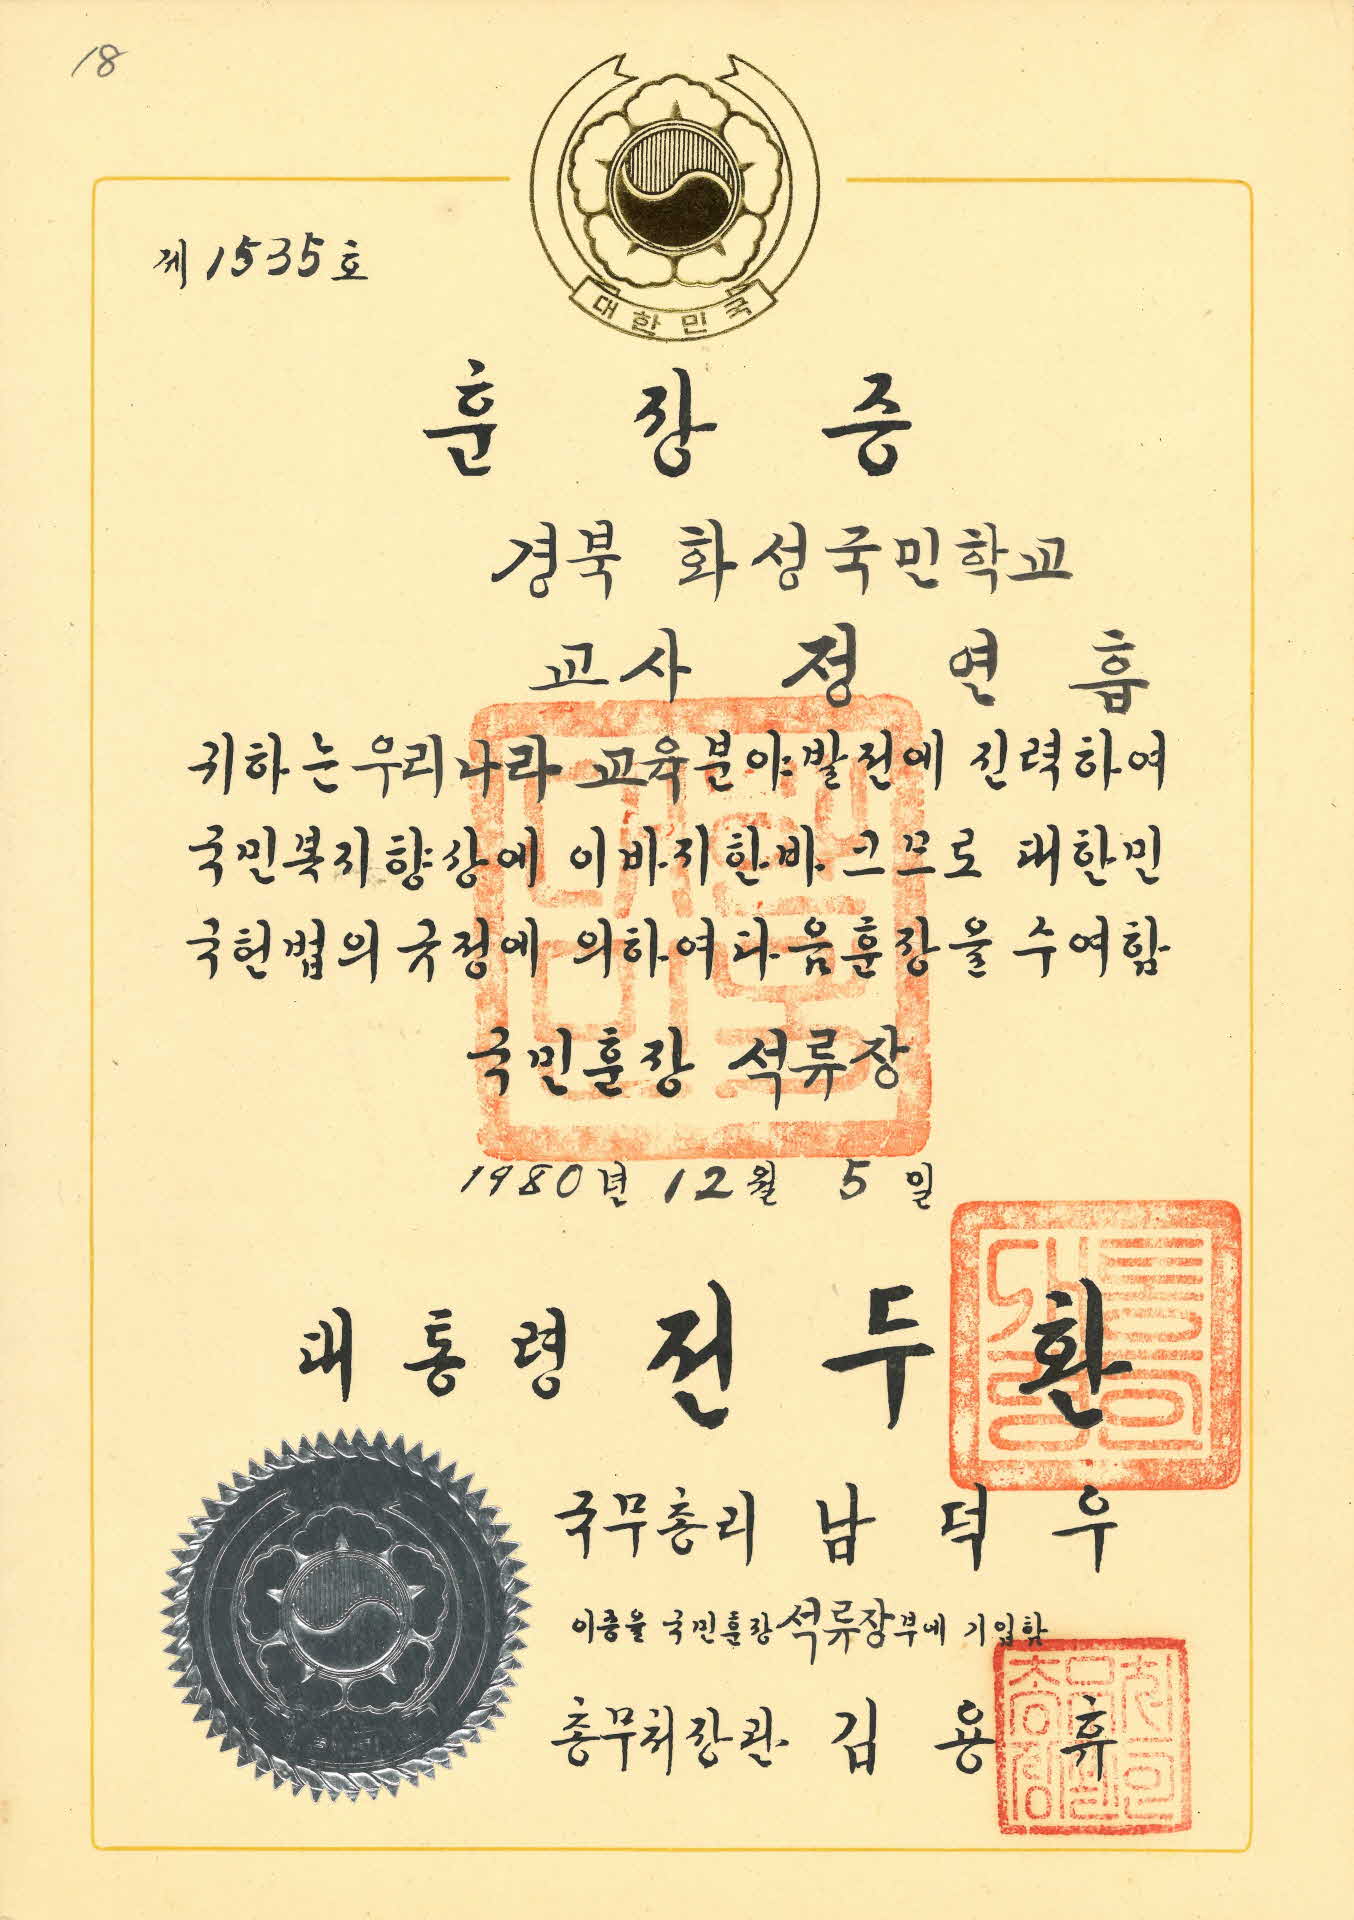 18
대한민국
제1535호
훈장증
경북 화성국민학교
교사 정연흡
귀하는 우리나라 교육분야발전에 진력하여
국민복지향상에 이바지한바 크므로 대한민
국헌법의 규정에 의하여 다음 훈장을 수여함
국민훈장 석류장
1980년 12월 5일
대통령 전두환
국무총리 남덕우
이증을 국민훈장석류장부에 기입함
총무처장관 김용휴